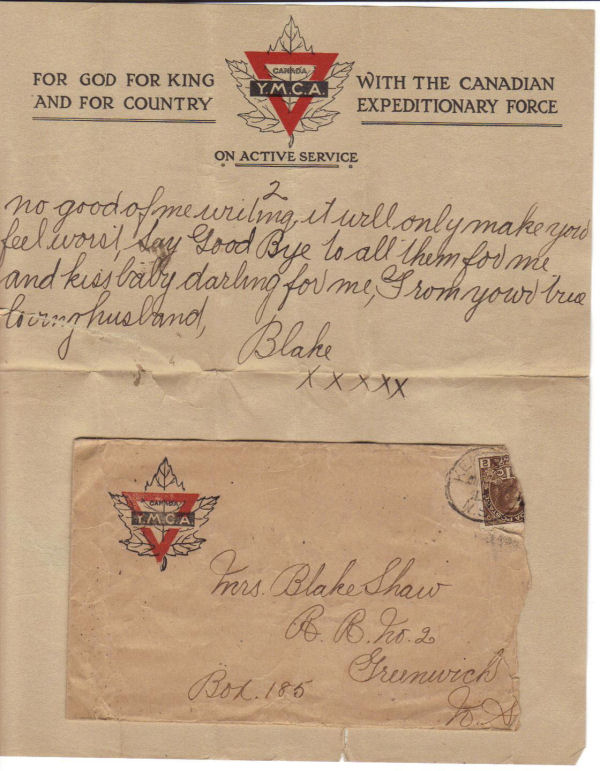 FOR GOD FOR KING
AND FOR COUNTRY
CANADA
Y.M.C.A.
WITH THE CANADIAN
EXPEDITIONARY FORCE
ON ACTIVE SERVICE
2
no good of me writing, it will only make you
feel worst, say Good Bye to all them for me
and kiss baby darling for me, From your true
loving husband,
Blake
X X X X X
CANADA
Y.M.C.A.
Mrs. Blake Shaw
R. R. No. 2
Greenwich
Box. 185
N.S